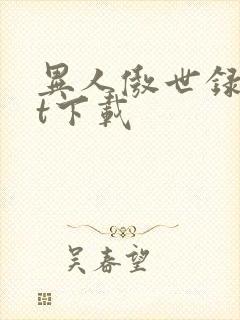 異人傲世録
t下載
吴春望